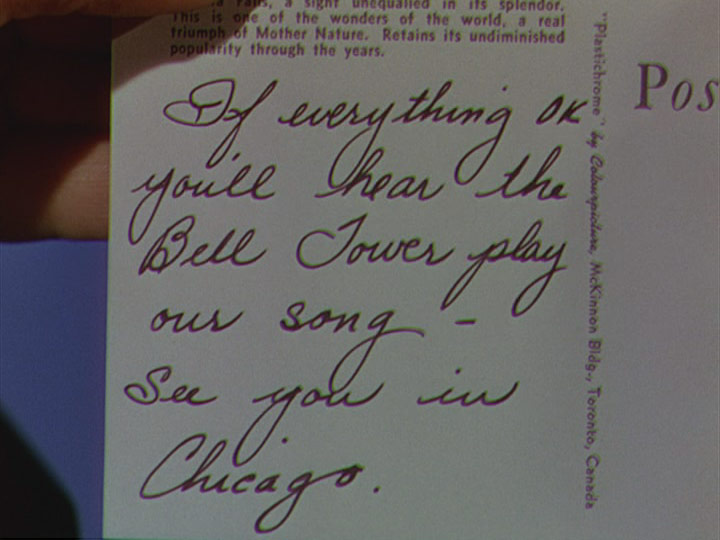 a Falls, a sight unequalled in its splendor.
This is one of the wonders of the world, a real
triumph of Mother Nature. Retains its undiminished
popularity through the years.
If everything OK
you'll hear the
Bell Tower play
our song –
See you in
Chicago.
"Plastichrome" by Colourpicture, McKinnon Bldg., Toronto, Canada
Pos